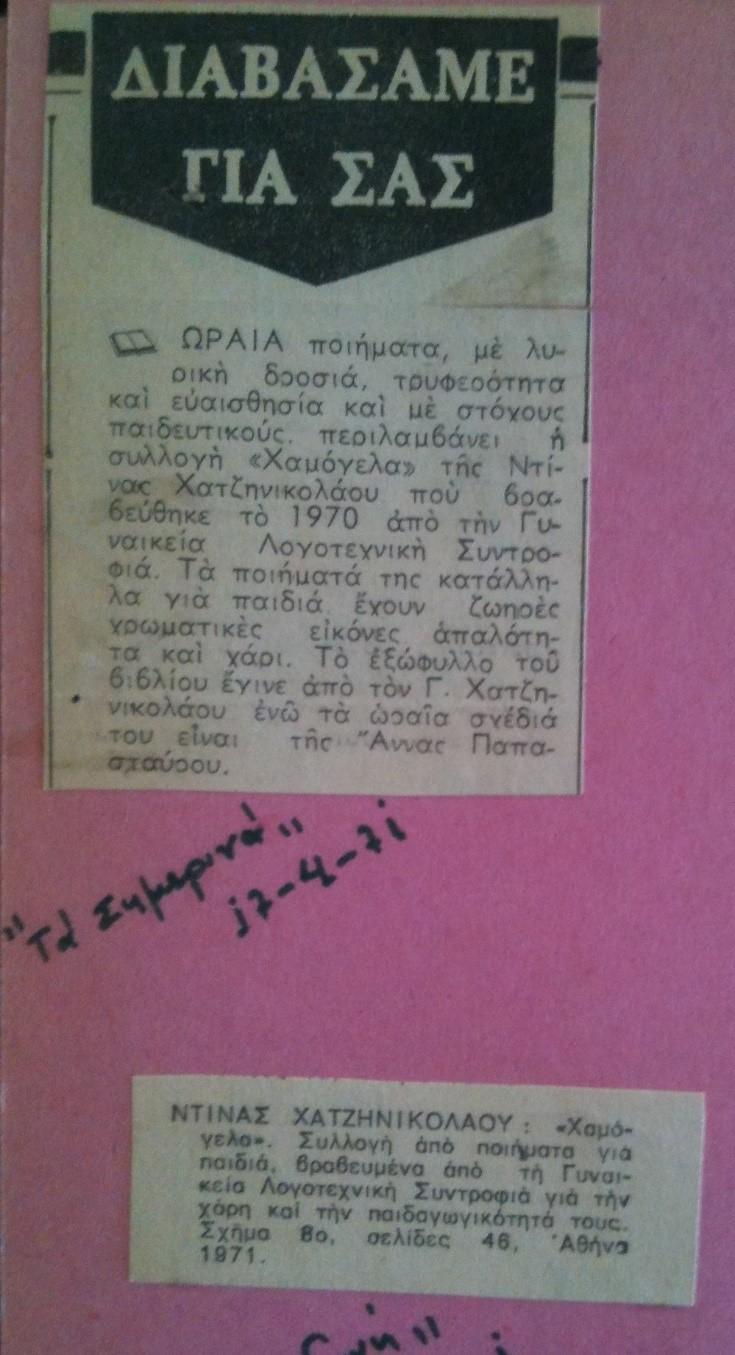 ΔΙΑΒΑΣΑΜΕ
ΓΙΑ ΣΑΣ
ΩΡΑΙΑ ποιήματα, μὲ λυ-
ρικὴ δροσιά, τρυφερότητα
καὶ εὐαισθησία καὶ μὲ στόχους
παιδευτικούς, περιλαμβάνει ἡ
συλλογὴ «Χαμόγελα» τῆς Ντί-
νας Χατζηνικολάου ποὺ βρα-
βεύθηκε τὸ 1970 ἀπὸ τὴν Γυ-
ναικεία Λογοτεχνικὴ Συντρο-
φιά. Τὰ ποιήματά της κατάλλη-
λα γιὰ παιδιά, ἔχουν ζωηρὲς
χρωματικὲς εἰκόνες ἁπαλότη-
τα καὶ χάρι. Τὸ ἐξώφυλλο τοῦ
βιβλίου ἔγινε ἀπὸ τὸν Γ. Χατζη-
νικολάου ἐνῶ τὰ ὡραῖα σχέδιά
του εἶναι τῆς Ἄννας Παπα-
σταύρου.
"Τὰ Σημερινά"
17-4-71
ΝΤΙΝΑΣ ΧΑΤΖΗΝΙΚΟΛΑΟΥ: «Χαμό-
γελα». Συλλογὴ ἀπὸ ποιήματα γιὰ
παιδιά, βραβευμένα ἀπὸ τὴ Γυναι-
κεία Λογοτεχνικὴ Συντροφιὰ γιὰ τὴν
χάρη καὶ τὴν παιδαγωγικότητά τους.
Σχῆμα 8ο, σελίδες 46, Ἀθήνα
1971.